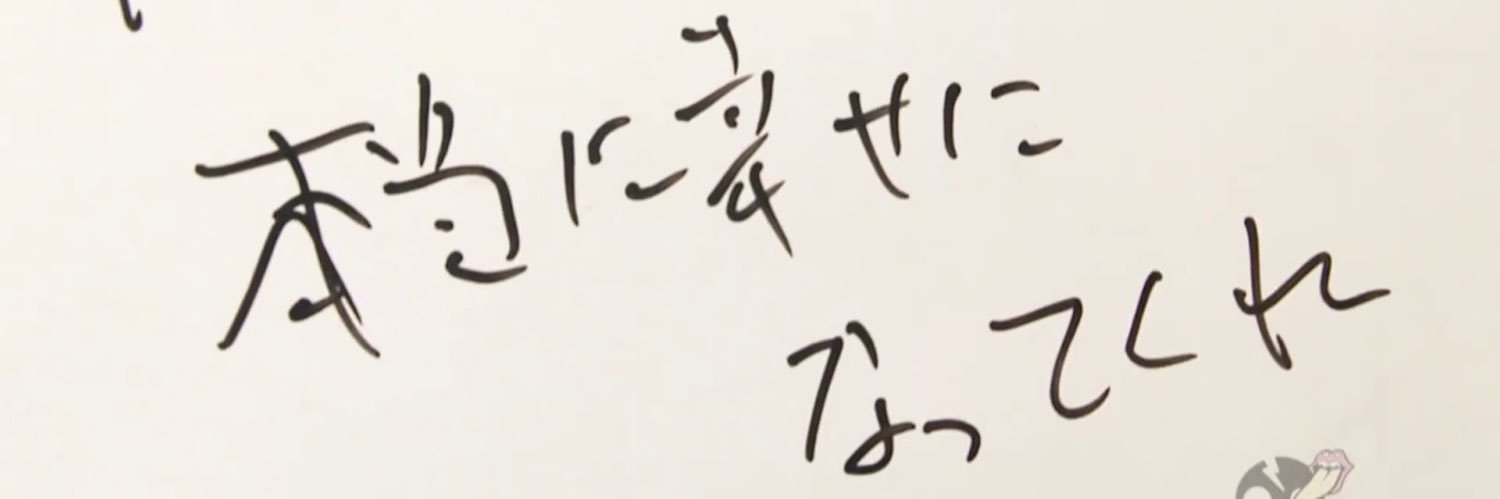 本当に幸せに
なってくれ